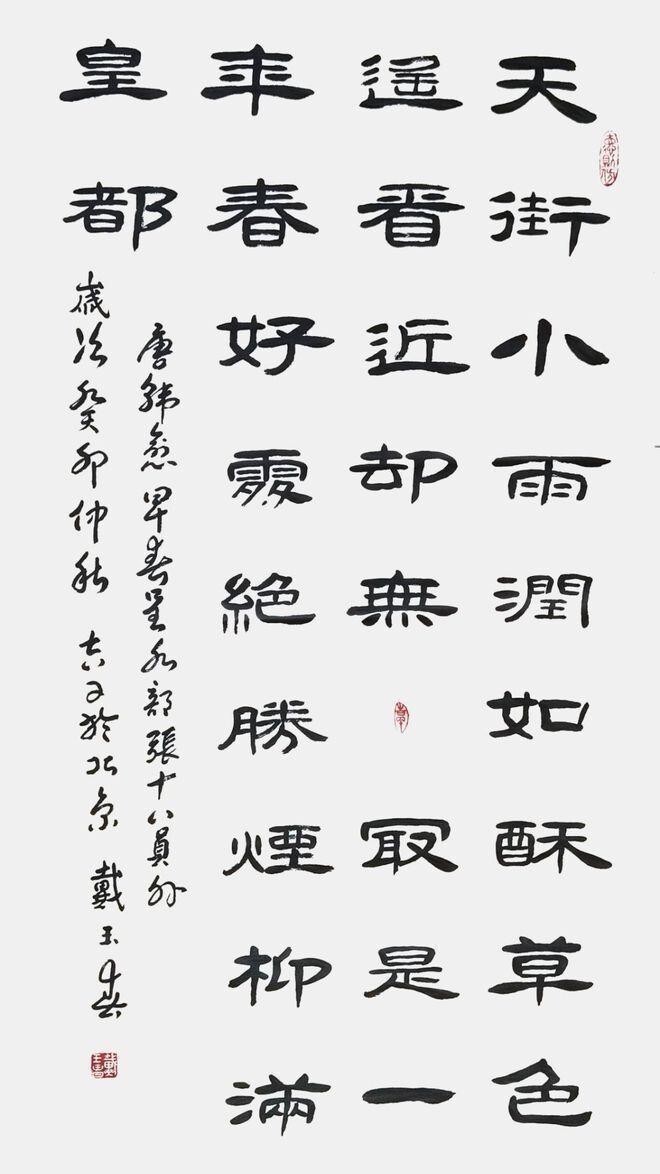 天街小雨潤如酥草色
遥看近却無最是一
年春好處絕勝煙柳滿
皇都
唐韓愈早春呈水部張十八員外
歲次癸卯仲秋 於北京 戴玉